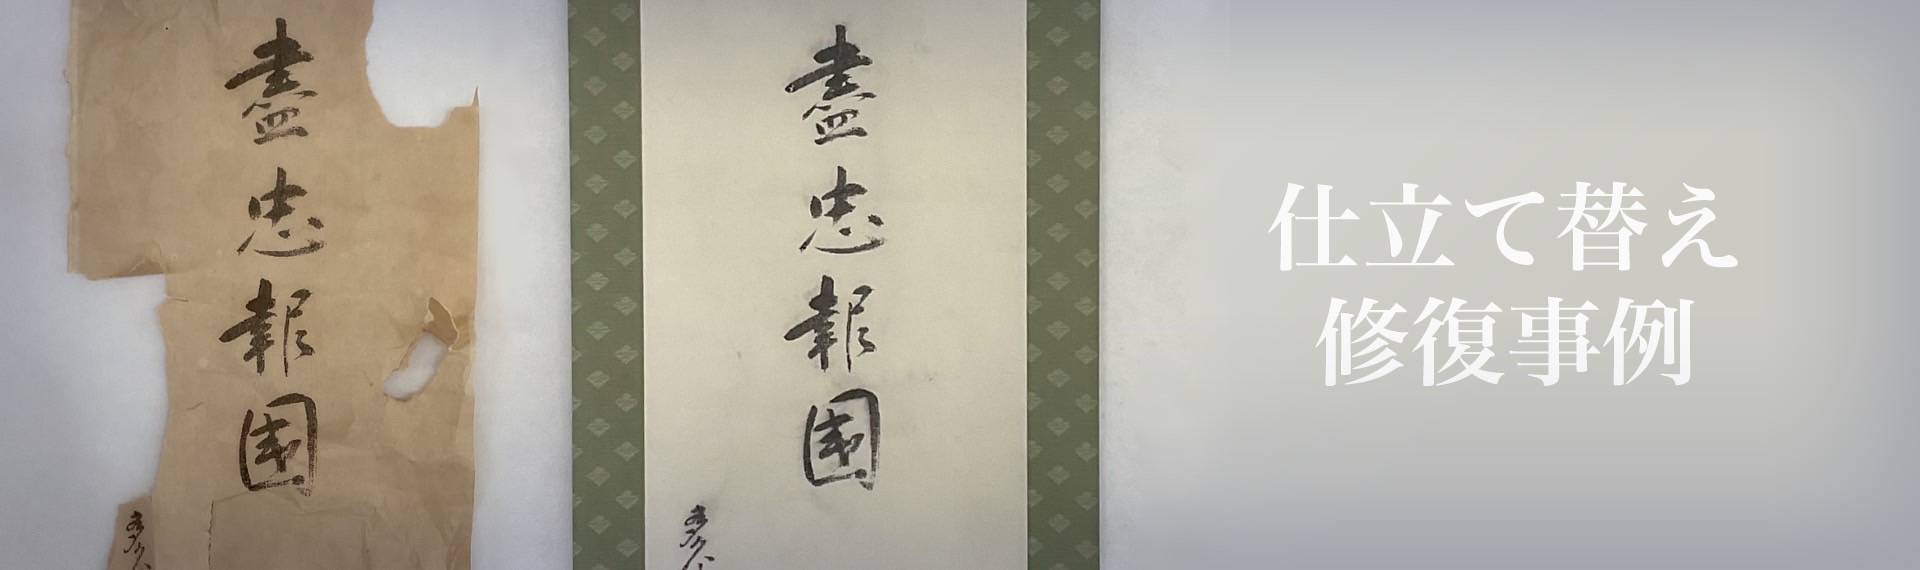 盡忠報國
盡忠報國
仕立て替え
修復事例